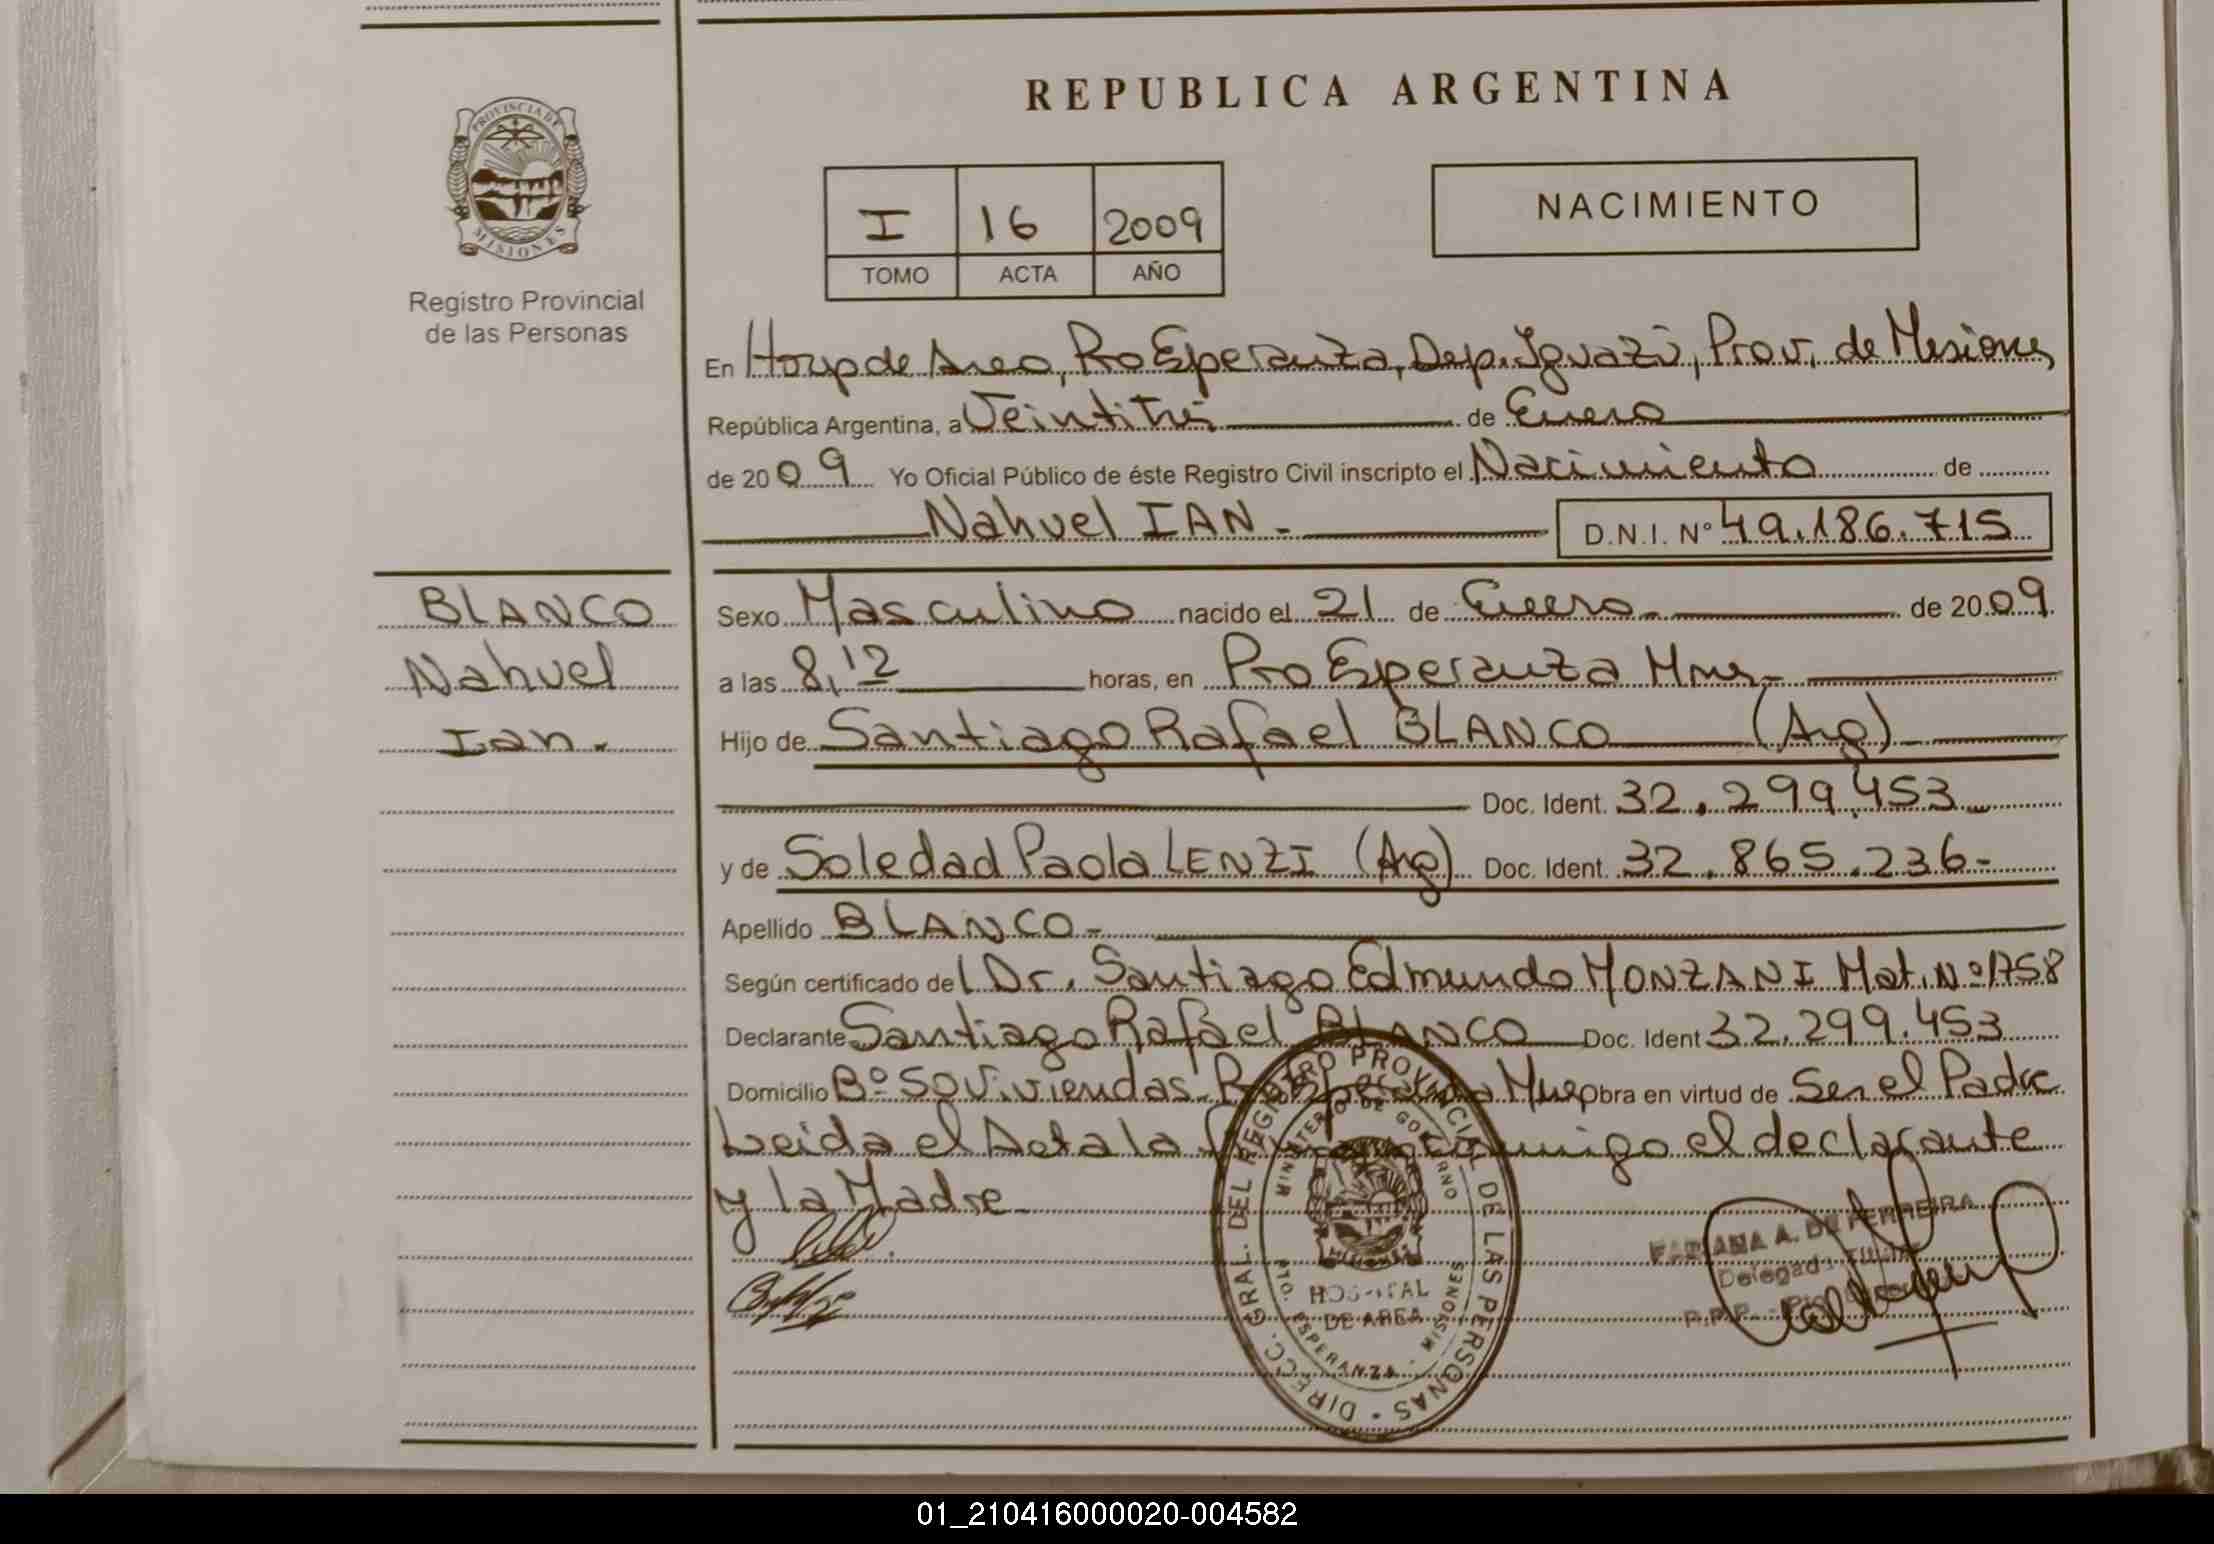 REPUBLICA ARGENTINA
PROVINCIA DE
MISIONES
Registro Provincial
de las Personas
I 16 2009
TOMO ACTA AÑO
NACIMIENTO
En Hosp de Area, Pto Esperanza, Dep. Iguazú, Prov. de Misiones
República Argentina, a Veintitres de Enero
de 2009 Yo Oficial Público de éste Registro Civil inscripto el Nacimiento de
Nahuel IAN.- D.N.I. Nº 49.186.715
BLANCO
Nahuel
Ian.
Sexo Masculino nacido el 21 de Enero.- de 2009.
a las 8,12 horas, en Pto Esperanza Mnes.-
Hijo de Santiago Rafael BLANCO (Arg)
Doc. Ident. 32.299.453
y de Soledad Paola LENZI (Arg) Doc. Ident. 32.865.236-
Apellido BLANCO-
Según certificado del Dr. Santiago Edmundo MONZANI Mat. Nº 1758
Declarante Santiago Rafael BLANCO Doc. Ident 32.299.453
Domicilio Bº 50 Viviendas Pto Esperanza Mnes obra en virtud de Ser el Padre
Leida el Acta la conmigo el declarante
y la Madre-
DIRECC. GRAL. DEL REGISTRO PROVINCIAL DE LAS PERSONAS
MINISTERIO DE GOBIERNO
HOSPITAL
DE AREA
PTO. ESPERANZA - MISIONES
FABIANA A. DE FERREIRA
Delegada Titular
R.P.P.
01_210416000020-004582